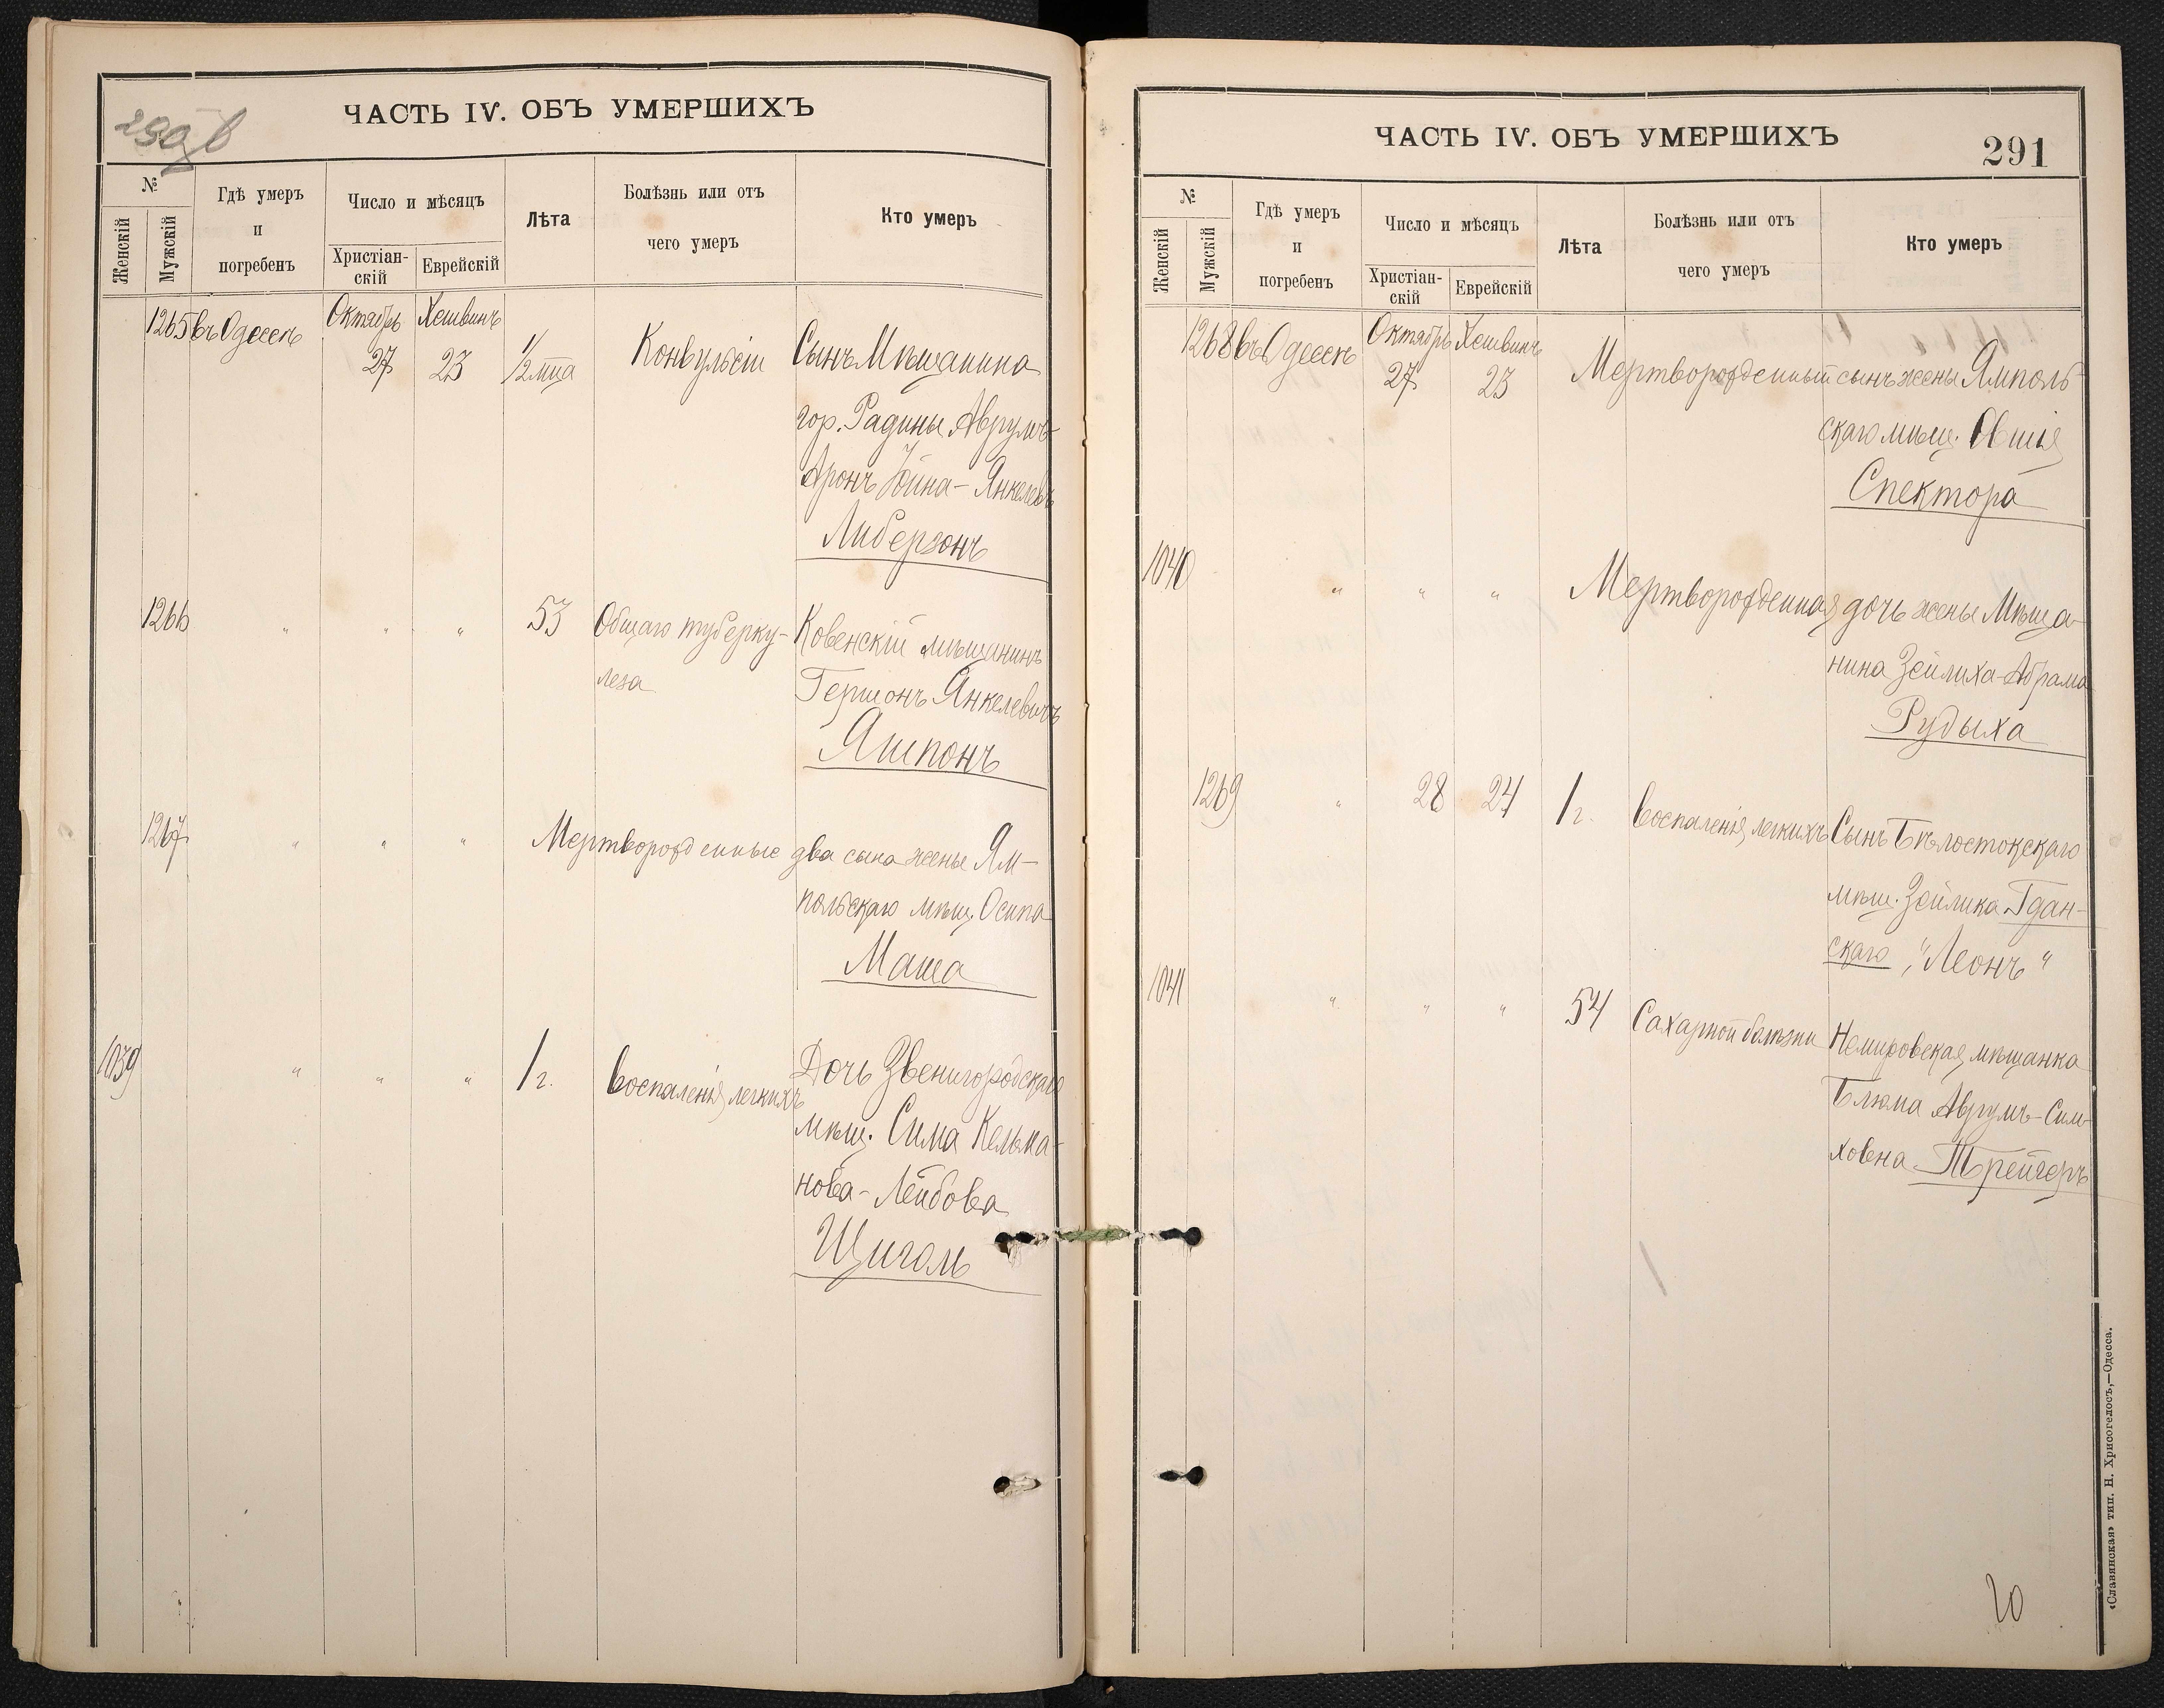 290 в
ЧАСТЬ IV. ОБЪ УМЕРШИХЪ
№
Женскій
Мужскій
Гдѣ умеръ
и
погребенъ
Число и мѣсяцъ
Христіан-
скій
Еврейскій
Лѣта
Болѣзнь или отъ
чего умеръ
Кто умеръ
1265 въ Одессѣ Октябрь Хешвинъ
27 23 1/2 мца Конвульсіи Сынъ Мѣщанина
гор. Радины Аврумъ-
Аронъ Іойна-Янкелевъ
Либерзонъ
1266 " " " 53 Общаго туберку- Ковенскій мѣщанинъ
леза Гершонъ Янкелевичъ
Яшпонъ
1267 " " " Мертворожденные два сына жены Ям-
польскаго мѣщ. Осипа
Маша
1039 " " " 1 г. Воспаленія легкихъ Дочь Звенигородскаго
мѣщ. Сима Кельма-
нова-Лейбова
Щиголь
ЧАСТЬ IV. ОБЪ УМЕРШИХЪ
291
№
Женскій
Мужскій
Гдѣ умеръ
и
погребенъ
Число и мѣсяцъ
Христіан-
скій
Еврейскій
Лѣта
Болѣзнь или отъ
чего умеръ
Кто умеръ
1268 въ Одессѣ Октябрь Хешвинъ
27 23 Мертворожденный сынъ жены Ямполь-
скаго мѣщ. Овшія
Спектора
1040 " " " Мертворожденная дочь жены Мѣща-
нина Зейлиха-Абрама
Рудыха
1269 " 28 24 1 г. Воспаленія легкихъ Сынъ Бѣлостокскаго
мѣщ. Зейлика Гдан-
скаго, "Леонъ"
1041 " " " 54 Сахарной болѣзни Немировская мѣщанка
Блюма Аврумъ-Сим-
ховна Трейгеръ
20
«Славянская» тип. Н. Хрисогелосъ,—Одесса.